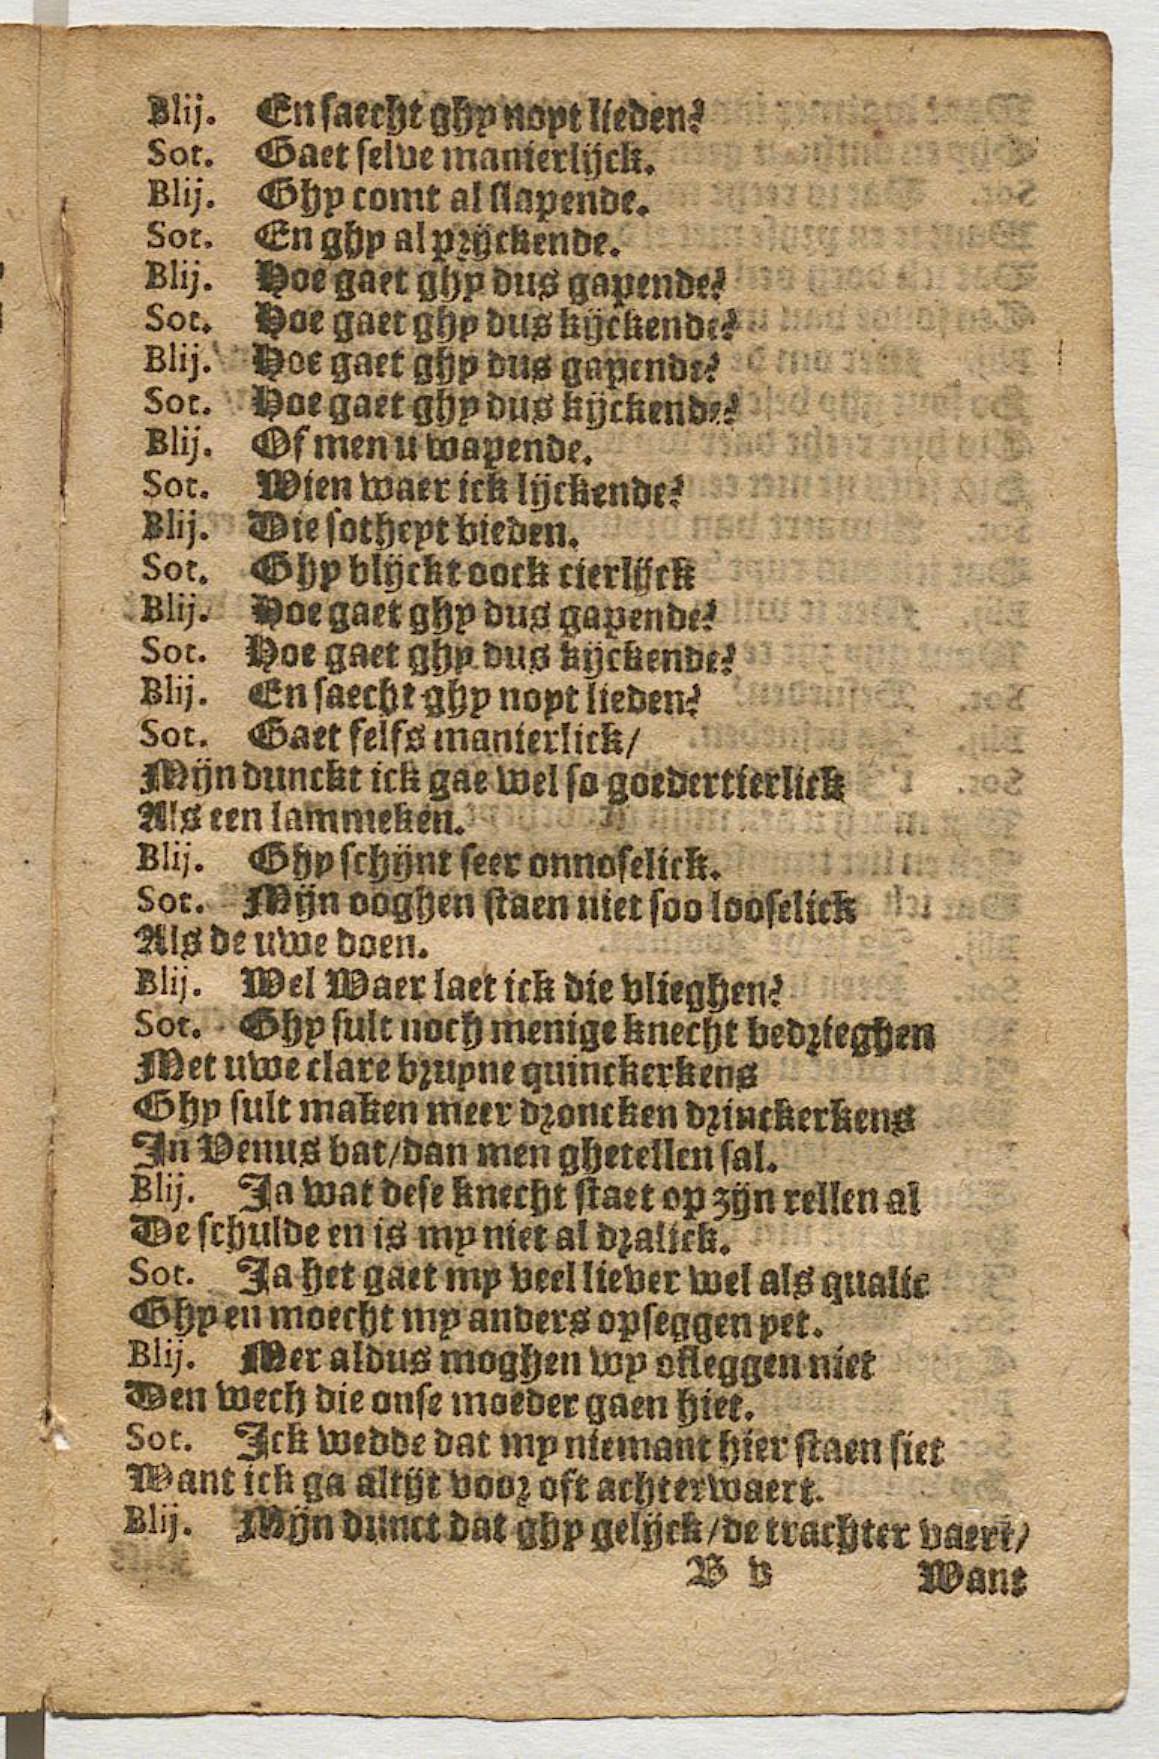 Blij. En saecht ghy noyt lieden?
Sot. Gaet selve manierlijck.
Blij. Ghy comt al slapende.
Sot. En ghy al prijckende.
Blij. Hoe gaet ghy dus gapende?
Sot. Hoe gaet ghy dus kijckende?
Blij. Hoe gaet ghy dus gapende?
Sot. Hoe gaet ghy dus kijckende?
Blij. Of men u wapende.
Sot. Wien waer ick lijckende?
Blij. Die sotheyt bieden.
Sot. Ghy blijckt oock cierlijck
Blij. Hoe gaet ghy dus gapende?
Sot. Hoe gaet ghy dus kijckende?
Blij. En saecht ghy noyt lieden?
Sot. Gaet selfs manierlick/
Mijn dunckt ick gae wel so goedertierlick
Als een lammeken.
Blij. Ghy schijnt seer onnoselick.
Sot. Mijn ooghen staen niet soo looselick
Als de uwe doen.
Blij. Wel Waer laet ick die vlieghen?
Sot. Ghy sult noch menige knecht bedrieghen
Met uwe clare bruyne quinckerkens
Ghy sult maken meer droncken drinckerkens
In Venus vat/dan men ghetellen sal.
Blij. Ja wat dese knecht staet op zijn rellen al
De schulde en is my niet al dralick.
Sot. Ja het gaet my veel liever wel als qualic
Ghy en moecht my anders opseggen yet.
Blij. Mer aldus moghen wy ofleggen niet
Den wech die onse moeder gaen hiet.
Sot. Ick wedde dat my niemant hier staen siet
Want ick ga altijt voor oft achterwaert.
Blij. Mijn dunct dat ghy gelijck/de trachter vaert/
B v Want